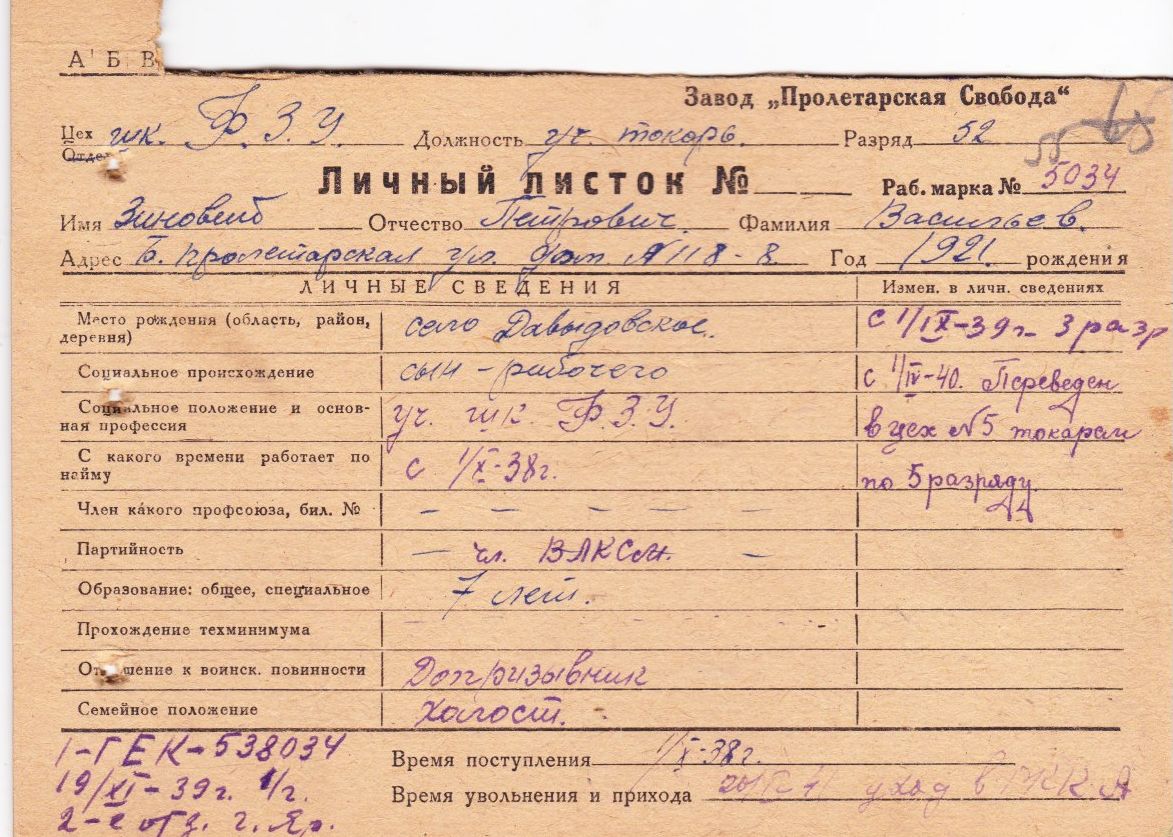 А Б В
Завод „Пролетарская Свобода“
Цех Отдел шк. Ф.З.У. Должность уч. токарь. Разряд 52
55
Личный листок № Раб. марка № 5034
Имя Зиновей Отчество Петрович. Фамилия Васильев.
Адрес Б. Пролетарская ул. дом № 118-8 Год 1921. рождения
ЛИЧНЫЕ СВЕДЕНИЯ Измен. в личн. сведениях
Место рождения (область, район, деревня) село Давыдовское. с 1/IX-39г. 3 разр
Социальное происхождение сын - рабочего с 1/IV-40. Переведен
Социальное положение и основная профессия уч. шк. Ф.З.У. в цех №5 токарем
С какого времени работает по найму с 1/X-38г. по 5 разряду
Член какого профсоюза, бил. № – – – – –
Партийность – чл. ВЛКСМ. –
Образование: общее, специальное 7 лет.
Прохождение техминимума
Отношение к воинск. повинности Допризывник
Семейное положение Холост.
1-ГЕК-538034
19/XI-39г. 1/г.
2-е отд. г. Яр.
Время поступления 1/X-38г.
Время увольнения и прихода уход в РККА